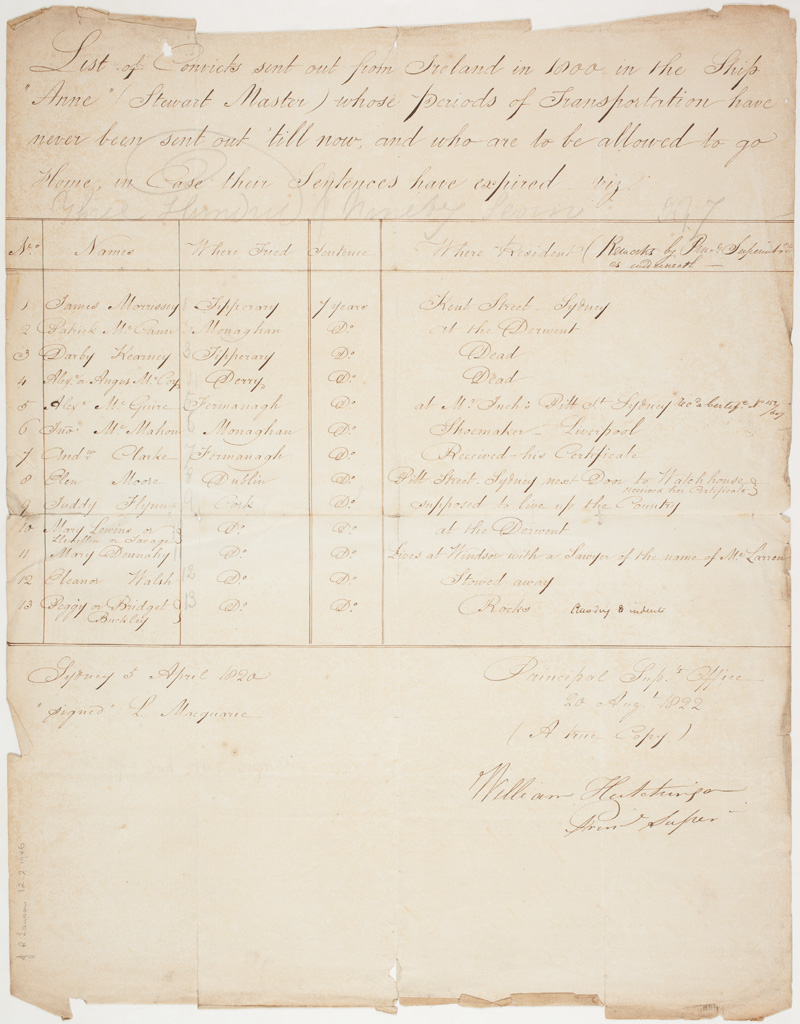 List of Convicts sent out from Ireland in 1800 in the Ship
"Anne" (Stewart Master) whose periods of Transportation have
never been sent out 'till now, and who are to be allowed to go
Home, in Case their Sentences have expired viz.
No. Names Where Tried Sentence Where Resident (Remarks by Superint
as underneath
1 James Morrissey Tipperary 7 years Kent Street Sydney
2 Patrick Mc Monaghan Do at the Derwent
3 Darby Kearney Tipperary Do Dead
4 Alexr or Angus McCoy Derry Do Dead
5 Alexr McGuire Fermanagh Do at Mr Inch's Pitt St Sydney
6 Jno McMahon Monaghan Do Shoemaker Liverpool
7 Andw Clarke Fermanagh Do Received his Certificate
8 Elen Moore Dublin Do Pitt Street Sydney next Door to Watchhouse
received her Certificate
9 Juddy Flynn Cork Do supposed to live up the Country
10 Mary Lewins or
Llewellen or Savage Do Do at the Derwent
11 Mary Donnahy Do Do Lives at Windsor with a Sawyer of the name of McLarren
12 Eleanor Walsh Do Do Stowed away
13 Peggy or Bridget
Buckley Do Do Rocks
Sydney 5 April 1820
"signed" L. Macquarie
Principal Supt's Office
20 Augt 1822
(A true Copy.)
William Hutchinson
Prinl Super
12.2.1926